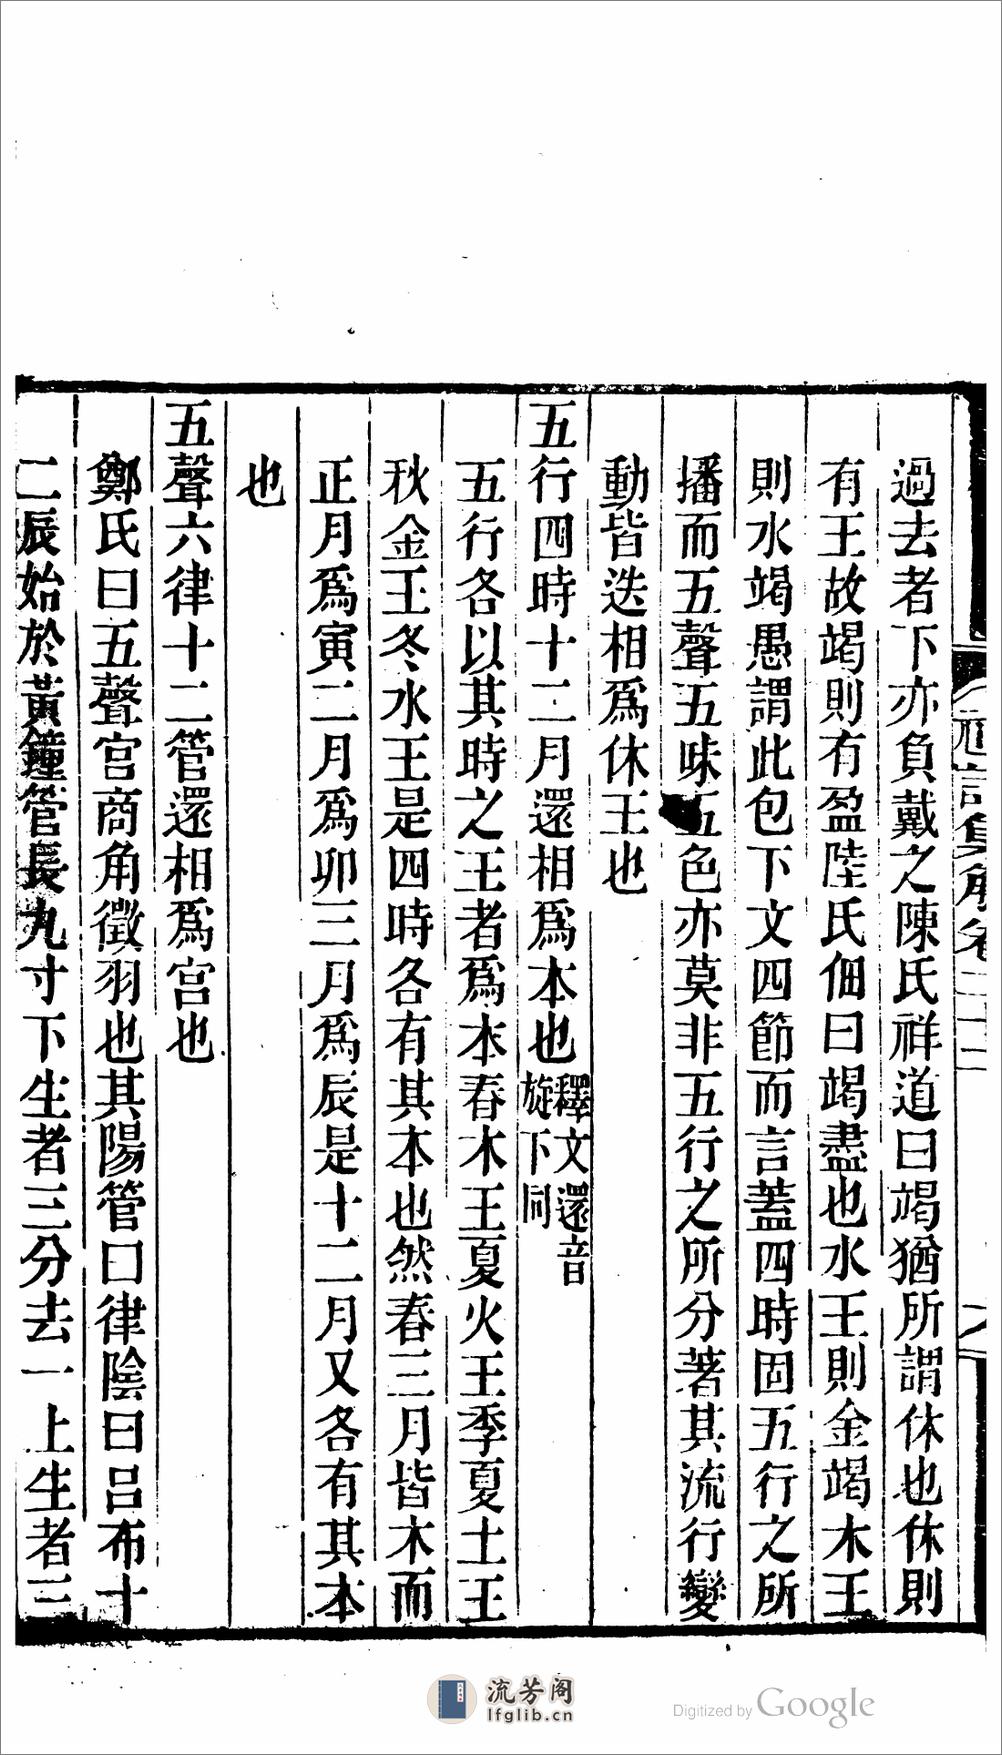 禮記集解卷二十二
過去者下亦負戴之陳氏祥道曰竭猶所謂休也休則
有王故竭則有盈陸氏佃曰竭盡也水王則金竭木王
則水竭愚謂此包下文四節而言蓋四時固五行之所
播而五聲五味五色亦莫非五行之所分著其流行變
動皆迭相爲休王也
五行四時十二月還相爲本也釋文還音旋下同
五行各以其時之王者爲本春木王夏火王季夏土王
秋金王冬水王是四時各有其本也然春三月皆木而
正月爲寅二月爲卯三月爲辰是十二月又各有其本
也
五聲六律十二管還相爲宮也
鄭氏曰五聲宮商角徵羽也其陽管曰律陰曰呂布十
二辰始於黃鐘管長九寸下生者三分去一上生者三
流芳阁
lfglib.cn
Digitized by Google